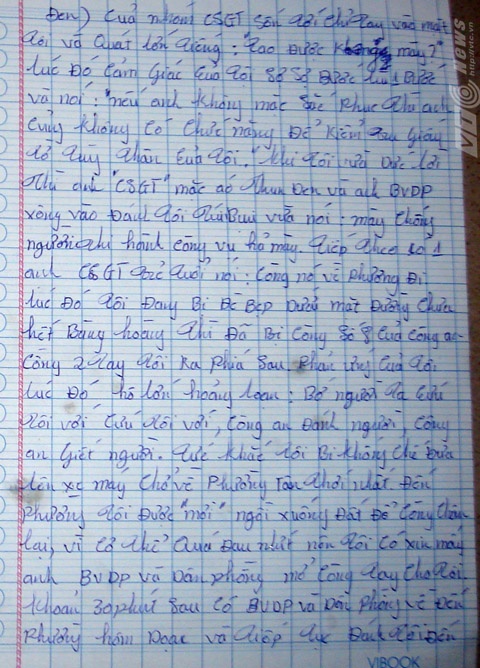 Đen) Của nhóm CSGT đến tôi chỉ tay vào mặt
tôi và Quát lớn tiếng: "tao được không mày?"
lúc Đó Cảm Giác Của tôi Sợ Sệt lùi 1 Bước
và nói: "nếu anh không mặc Sắc Phục thì anh
Cũng không Có Chức năng Để kiểm tra Giấy
tờ tùy thân Của tôi." khi tôi vừa Dứt lời
thì anh "CSGT" mặc áo thun Đen và anh BVDP
xông vào Đánh tôi túi Bụi vừa nói: mày Chống
người thi hành Công vụ hả mày. tiếp theo Có 1
anh CSGT trẻ tuổi nói: Còng nó về phường Đi
lúc Đó tôi Đang Bị Đè Bẹp Dưới mặt Đường Chưa
hết Bàng hoàng thì Đã Bị Còng Số 8 Của Công an
Còng 2 tay tôi Ra Phía Sau. Phản ứng Của tôi
lúc Đó hô lớn hoảng loạn: Bớ người ta Cứu
tôi với Cứu tôi với, Công an Đánh người, Công
an Giết người. tức khắc tôi Bị khống Chế Đưa
lên xe máy Chở về Phường tân thới nhất. Đến
Phường tôi Được "mời" ngồi xuống Đất Để Còng Chân
lại, vì Cơ thể Quá Đau nhức nên tôi Có xin mấy
anh BVDP và Dân phòng mở Còng tay Cho tôi.
khoảng 30 phút Sau Có BVDP và Dân Phòng về Đến
Phường hăm Dọa và tiếp tục Đánh tôi Đến
VTC News
www.vtc.vn
VIBOOK